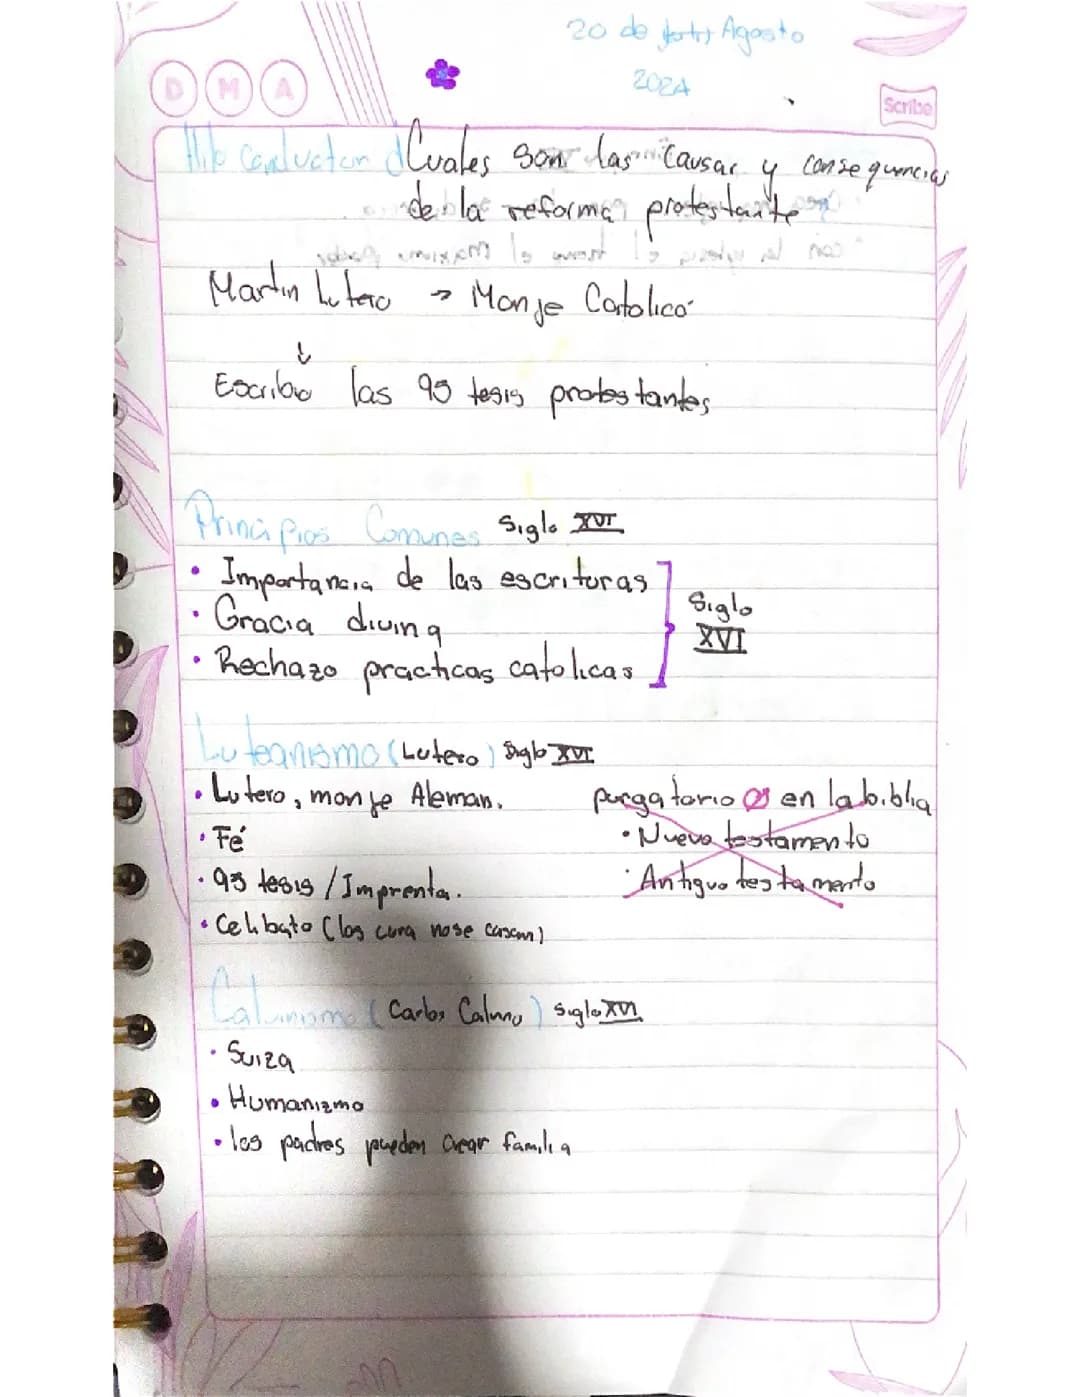 20 de Agosto
2024
D M A
Scribe
Hilo Conductor ¿Cuales son las causar y consequencias
de la reforma protestante
Martin Lutero → Monje Catolico
↓
Escribio las 95 tesis protestantes
Principios Comunes Siglo XVI
• Importancia de las escrituras
• Gracia divina
• Rechazo practicas catolicas
Siglo
XVI
Luteanismo (Lutero) Siglo XVI
• Lutero, monje Aleman.
• Fé
• 95 tesis / Imprenta.
• Celibato (los cura no se casan)
purgatorio en la biblia
• Nuevo testamento
• Antiguo testamento
Calvinismo (Carlos Calvino) Siglo XVI
• Suiza
• Humanizmo
• los padres pueden crear familia